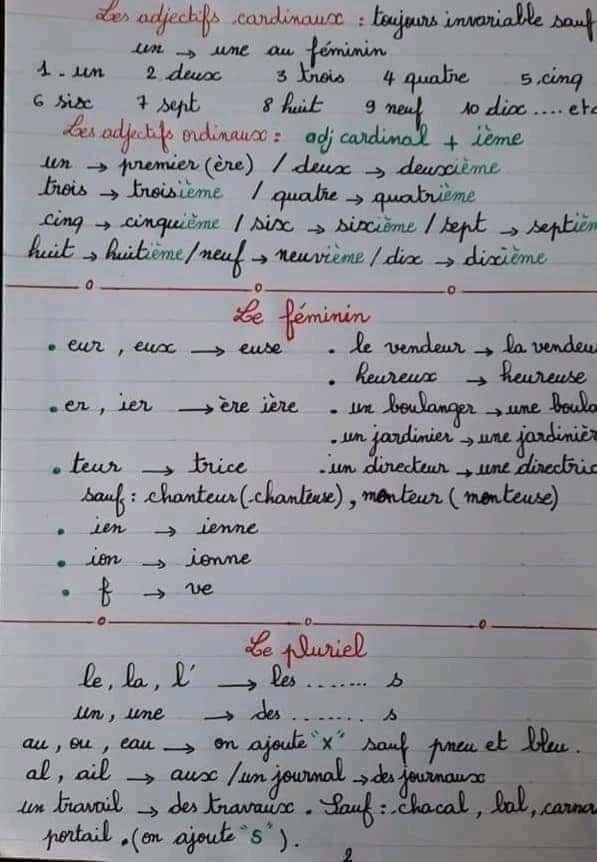 Les adjectifs cardinaux : toujours invariable sauf
un → une au féminin
1 - un 2 deux 3 trois 4 quatre 5. cinq
6 six 7 sept 8 huit 9 neuf 10 dix .... etc
Les adjectifs ordinaux : adj cardinal + ième
un → premier (ère) / deux → deuxième
trois → troisième / quatre → quatrième
cinq → cinquième / six → sixième / sept → septièm
huit → huitième / neuf → neuvième / dix → dixième
Le féminin
• eur , eux → euse • le vendeur → la vendeu
• heureux → heureuse
• er, ier → ère ière • un boulanger → une boula
• un jardinier → une jardinièr
• teur → trice • un directeur → une directric
sauf : chanteur (chanteuse) , menteur ( menteuse)
• ien → ienne
• ion → ionne
• f → ve
Le pluriel
le, la, l' → les ........ s
un, une → des ........ s
au, ou, eau → on ajoute "x" sauf pneu et bleu.
al, ail → aux / un journal → des journaux
un travail → des travaux. Sauf : chacal, bal, carna
portail. (on ajoute "s").
2